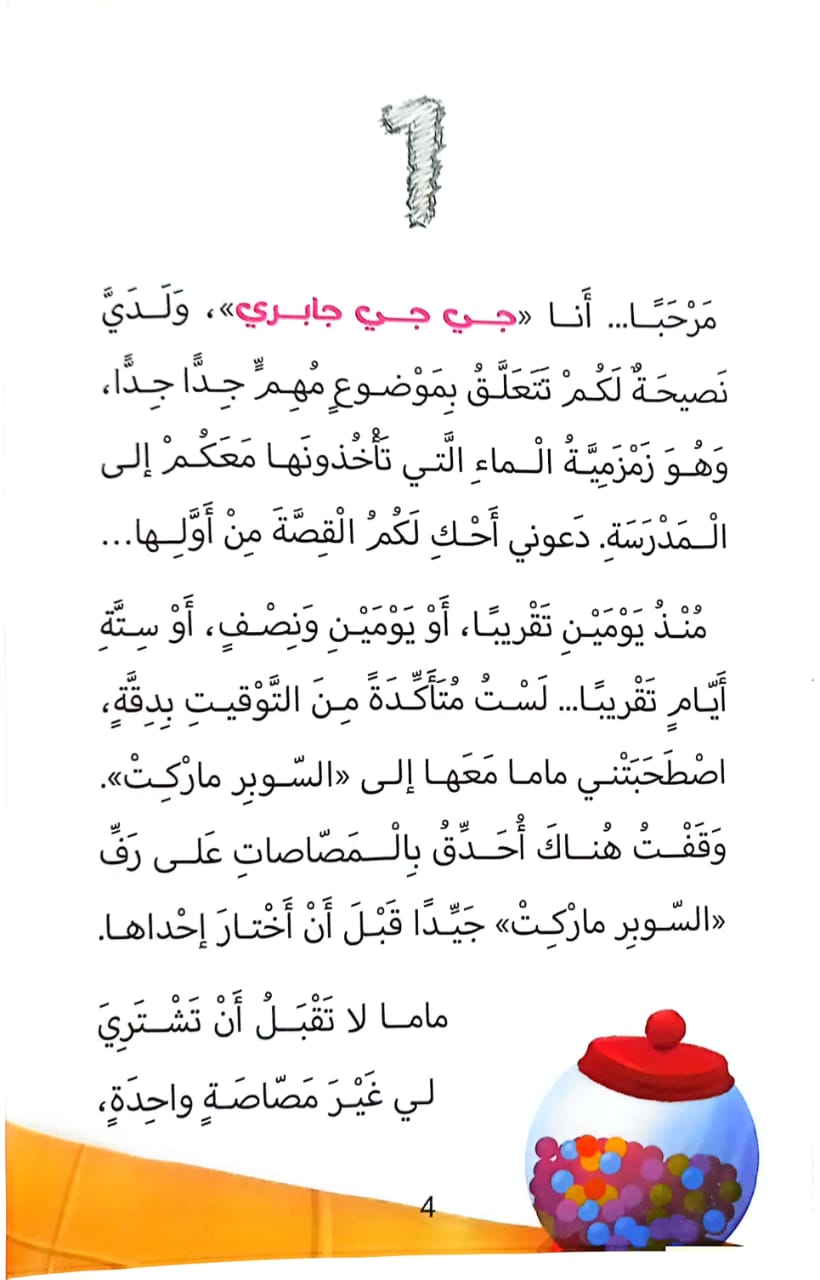 1
مَرْحَبًـا... أَنـا «جـي جـي جابـري»، وَلَـدَيَّ
نَصيحَـةٌ لَكُـمْ تَتَعَلَّـقُ بِمَوْضـوعٍ مُهِـمٍّ جِـدًّا جِـدًّا،
وَهُـوَ زَمْزَمِيَّـةُ الْـماءِ الَّتـي تَأْخُذونَهـا مَعَكُـمْ إلى
الْـمَدْرَسَةِ. دَعوني أَحْـكِ لَكُمُ الْقِصَّةَ مِنْ أَوَّلِـها...
مُنْـذُ يَوْمَيْـنِ تَقْريبًـا، أَوْ يَوْمَيْـنِ وَنِصْـفٍ، أَوْ سِـتَّةِ
أَيّـامٍ تَقْريبًـا... لَسْـتُ مُتَأَكِّـدَةً مِـنَ التَّوْقيـتِ بِدِقَّةٍ،
اصْطَحَبَتْنـي مامـا مَعَهـا إلـى «السّـوبِر مارْكِـتْ».
وَقَفْـتُ هُنـاكَ أُحَـدِّقُ بِالْـمَصّاصاتِ عَلـى رَفِّ
«السّـوبِر مارْكِـتْ» جَيِّـدًا قَبْـلَ أَنْ أَخْتـارَ إحْداهـا.
مامـا لا تَقْبَـلُ أَنْ تَشْـتَرِيَ
لـي غَيْـرَ مَصّاصَـةٍ واحِـدَةٍ،
4